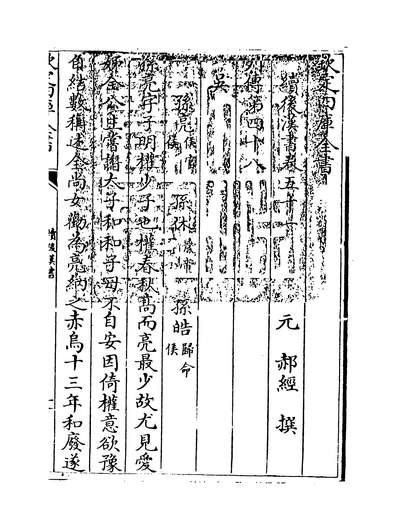 欽定四庫全書
續後漢書卷五十一
元 郝經 撰
列傳第四十八
吳
孫亮 侯官侯 孫休 景帝 孫皓 歸命侯
孫亮字子明權少子也權春秋高而亮最少故尤見愛
姊全公主嘗譖太子和和子母不自安因倚權意欲豫
自結數稱述全尚女勸為亮納之赤烏十三年和廢遂
欽定四庫全書
續後漢書